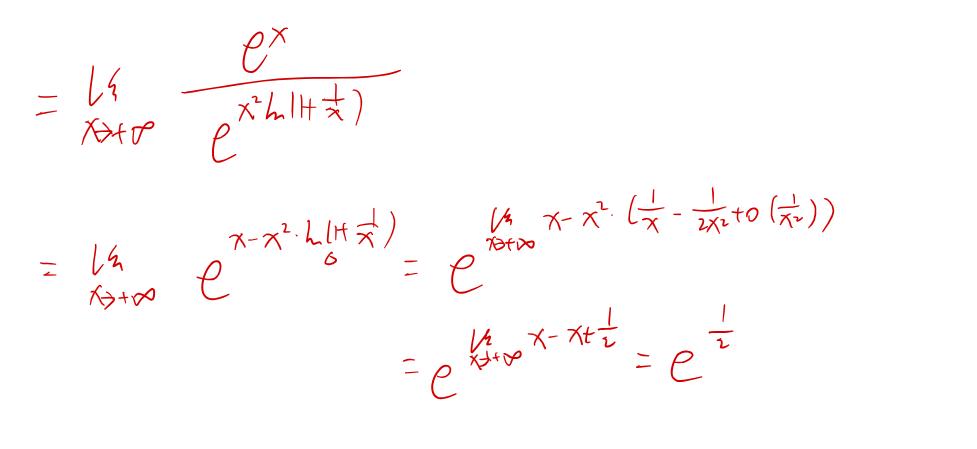 = lim x→+∞ e^x / e^(x² ln(1+1/x))
= lim x→+∞ e^(x-x²·ln(1+1/x)) = e^(lim x→+∞ x-x²·(1/x - 1/2x² + o(1/x²)))
= e^(lim x→+∞ x-x+1/2) = e^(1/2)